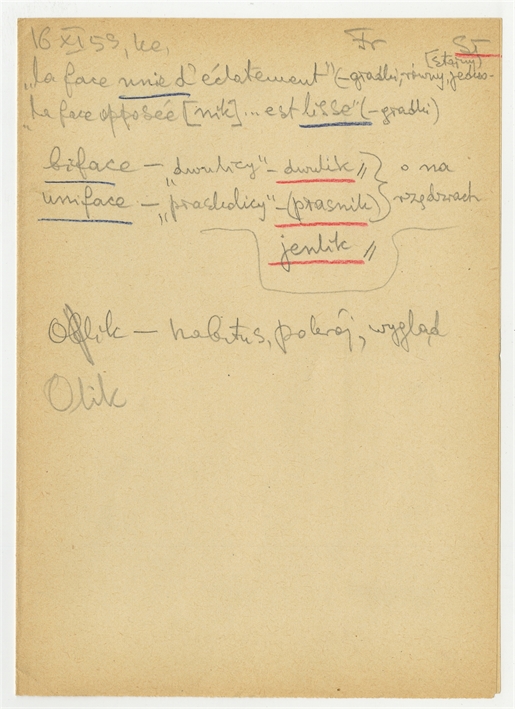 16 XI 59, ke, Fr ST
[starny]
"la face unie d'éclatement" (-gradki, równy, jedno-
"La face opposée [nik]... est lisse" (-gradki)
biface - "dwulicy" - dwulik // o na
uniface - "praskolicy" - (prasnik) rzędziach
jenlik //
Oblik - habitus, pokrój, wygląd
Olik